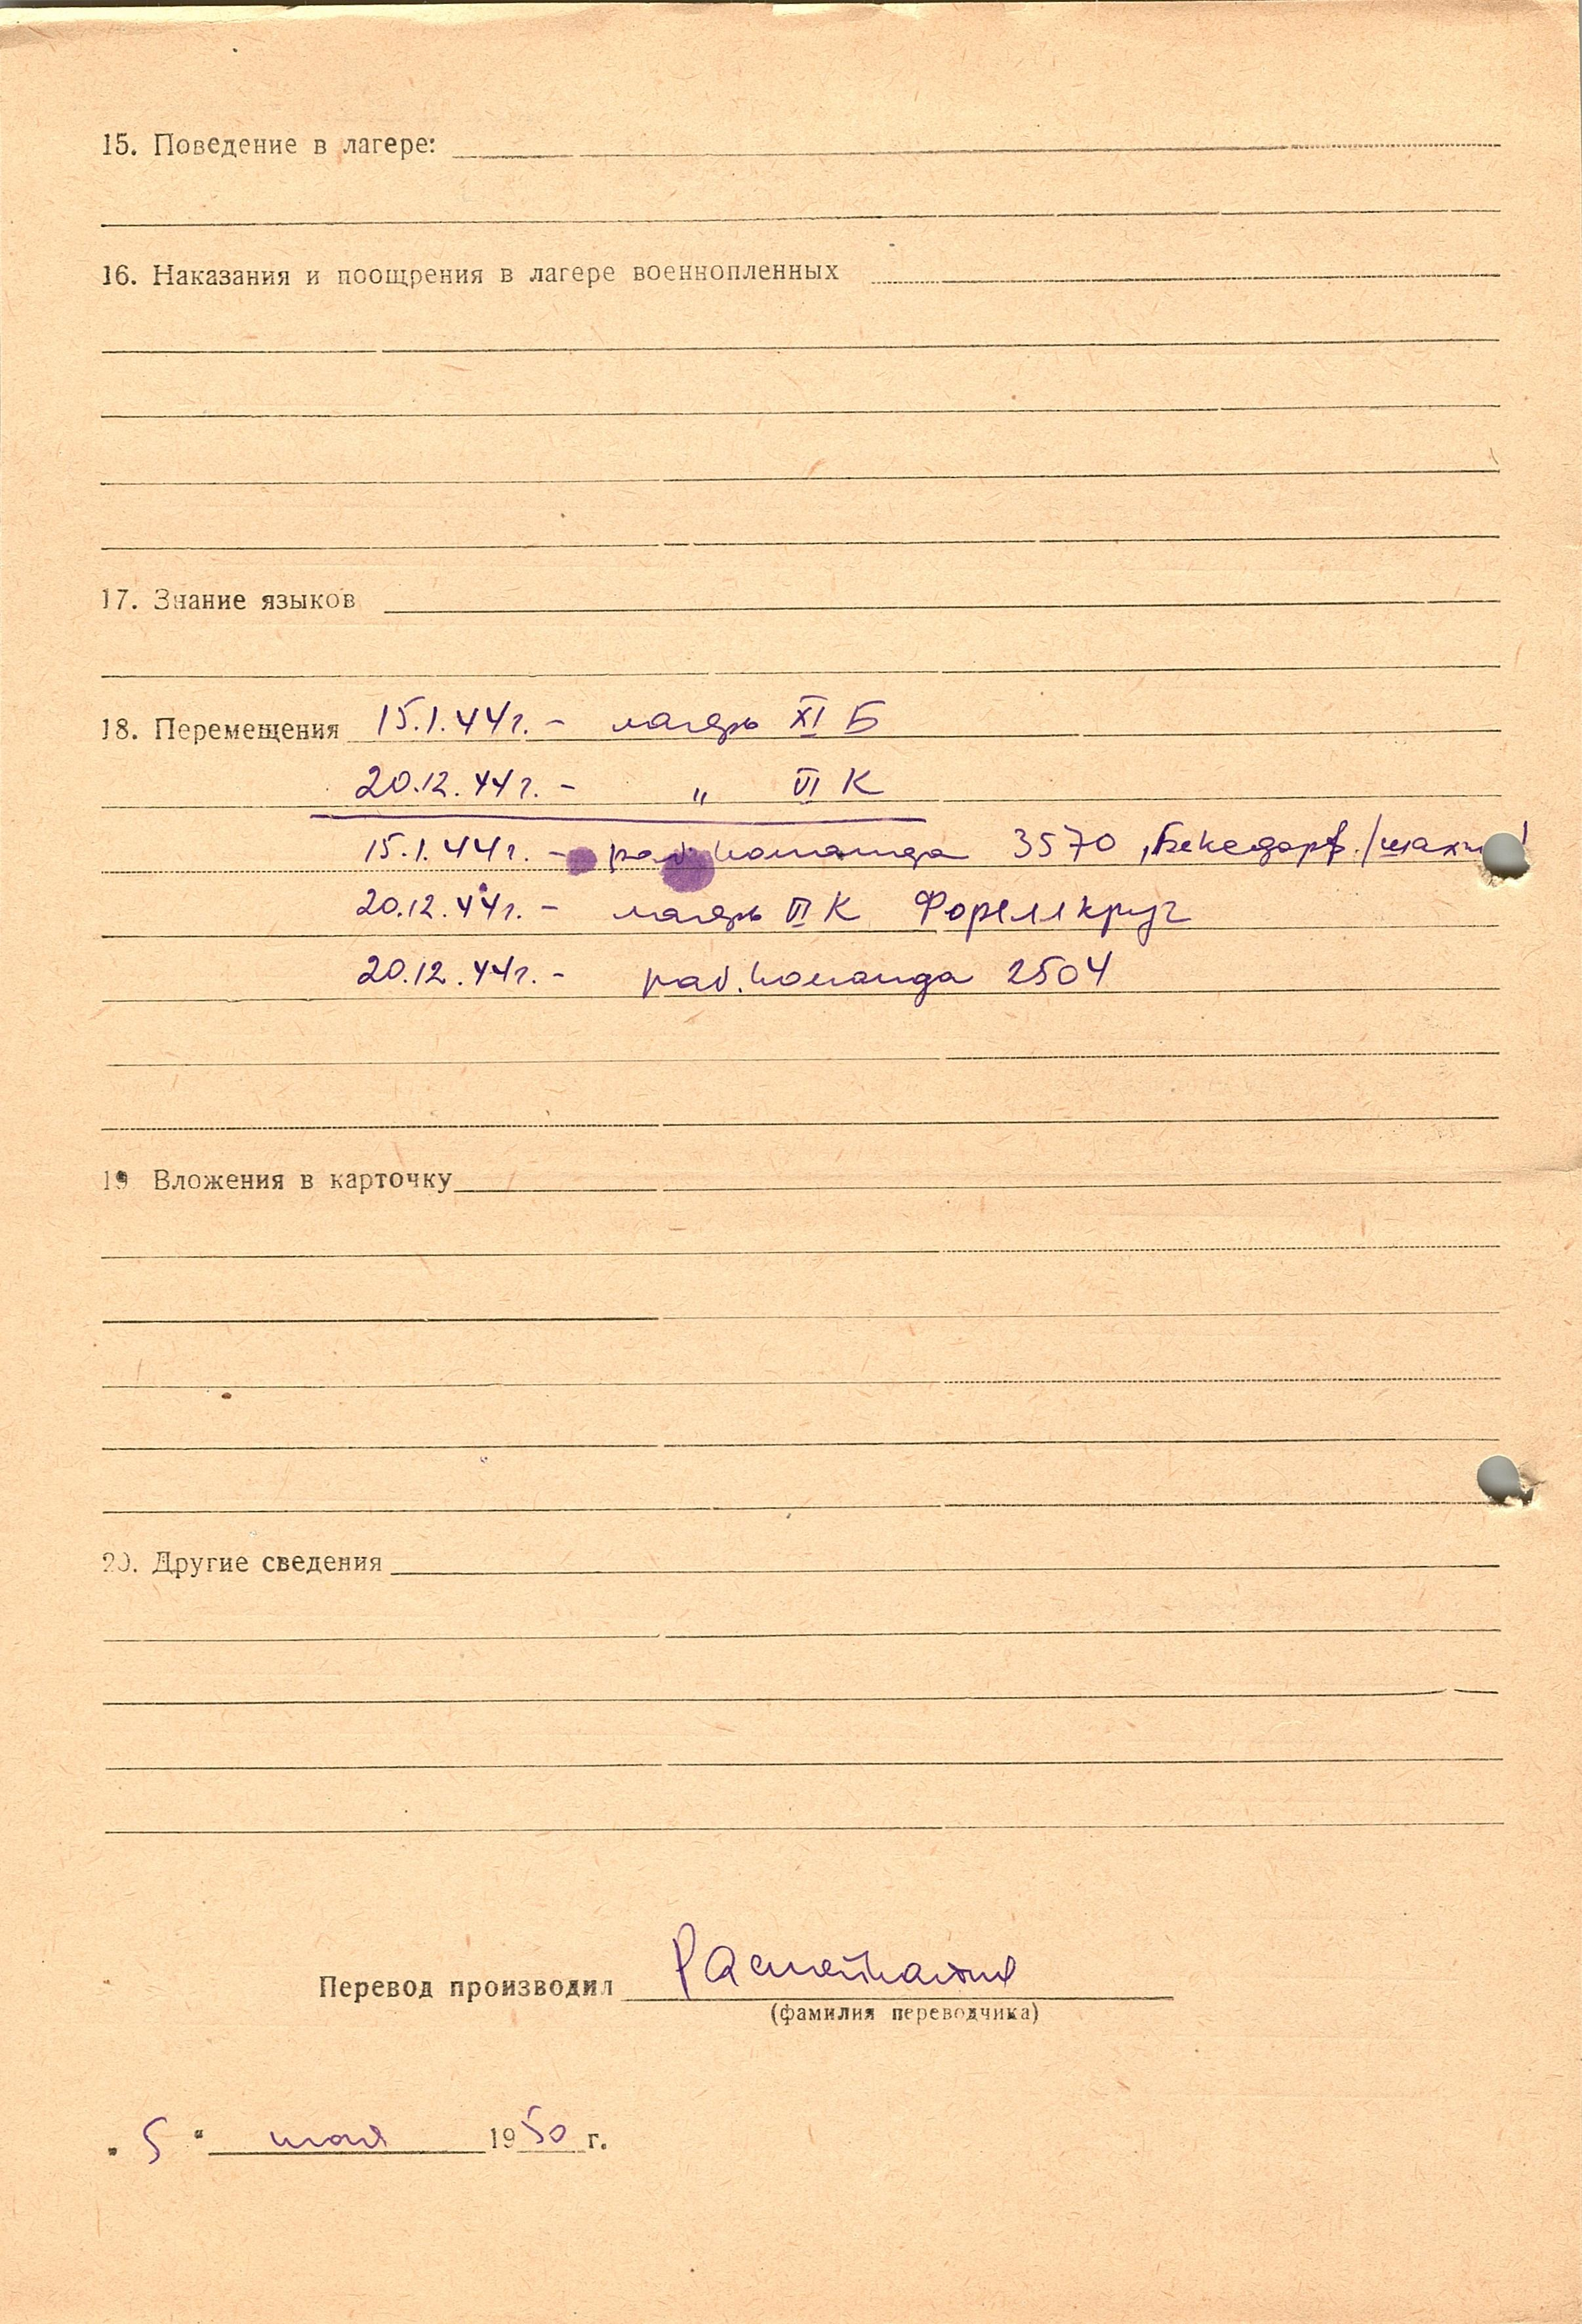 15. Поведение в лагере:
16. Наказания и поощрения в лагере военнопленных
17. Знание языков
18. Перемещения 15.1.44г. – лагерь XI Б
20.12.44г. – " VI К
15.1.44г. – раб. команда 3570, Бекедорф. /шахт
20.12.44г. – лагерь VI К Фореллкруг
20.12.44г. – раб. команда 2504
19 Вложения в карточку
20. Другие сведения
Перевод производил
(фамилия переводчика)
"5" мая 1950 г.